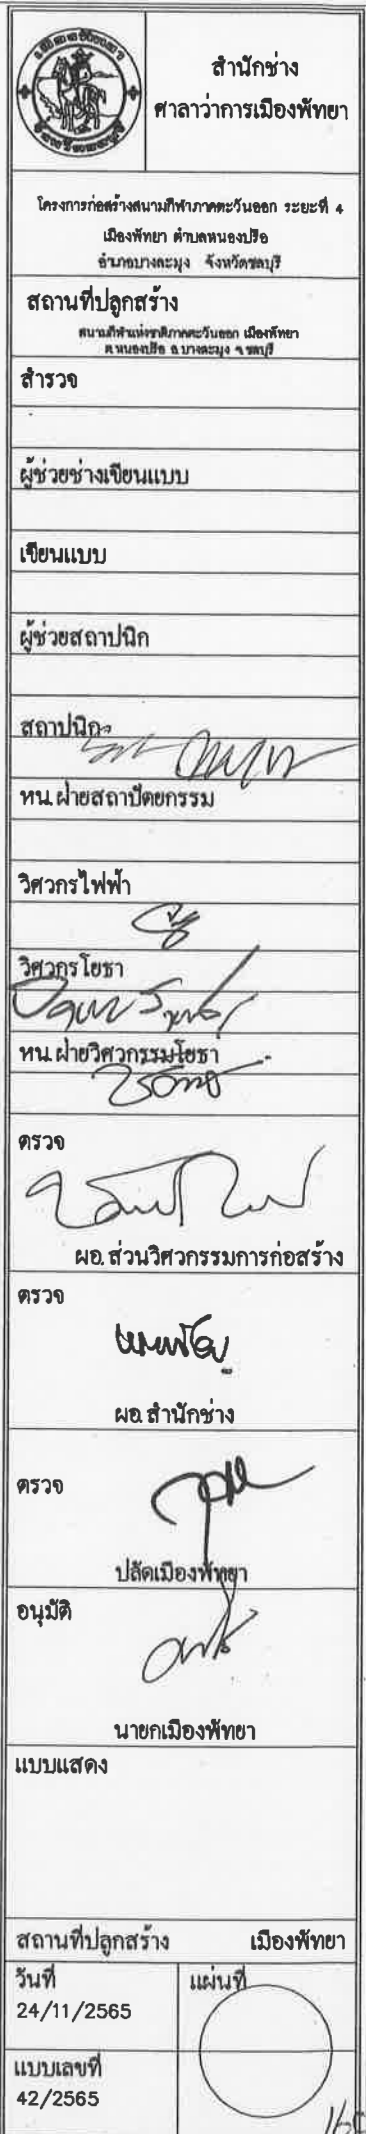 สำนักช่าง
ศาลาว่าการเมืองพัทยา
โครงการก่อสร้างสนามกีฬาภาคตะวันออก ระยะที่ 4
เมืองพัทยา ตำบลหนองปรือ
อำเภอบางละมุง จังหวัดชลบุรี
สถานที่ปลูกสร้าง
สนามกีฬาแห่งชาติภาคตะวันออก เมืองพัทยา
ต.หนองปรือ อ.บางละมุง จ.ชลบุรี
สำรวจ
ผู้ช่วยช่างเขียนแบบ
เขียนแบบ
ผู้ช่วยสถาปนิก
สถาปนิก
หน.ฝ่ายสถาปัตยกรรม
วิศวกรไฟฟ้า
วิศวกรโยธา
หน.ฝ่ายวิศวกรรมโยธา
ตรวจ
ผอ.ส่วนวิศวกรรมการก่อสร้าง
ตรวจ
ผอ.สำนักช่าง
ตรวจ
ปลัดเมืองพัทยา
อนุมัติ
นายกเมืองพัทยา
แบบแสดง
สถานที่ปลูกสร้าง เมืองพัทยา
วันที่
24/11/2565
แผ่นที่
แบบเลขที่
42/2565